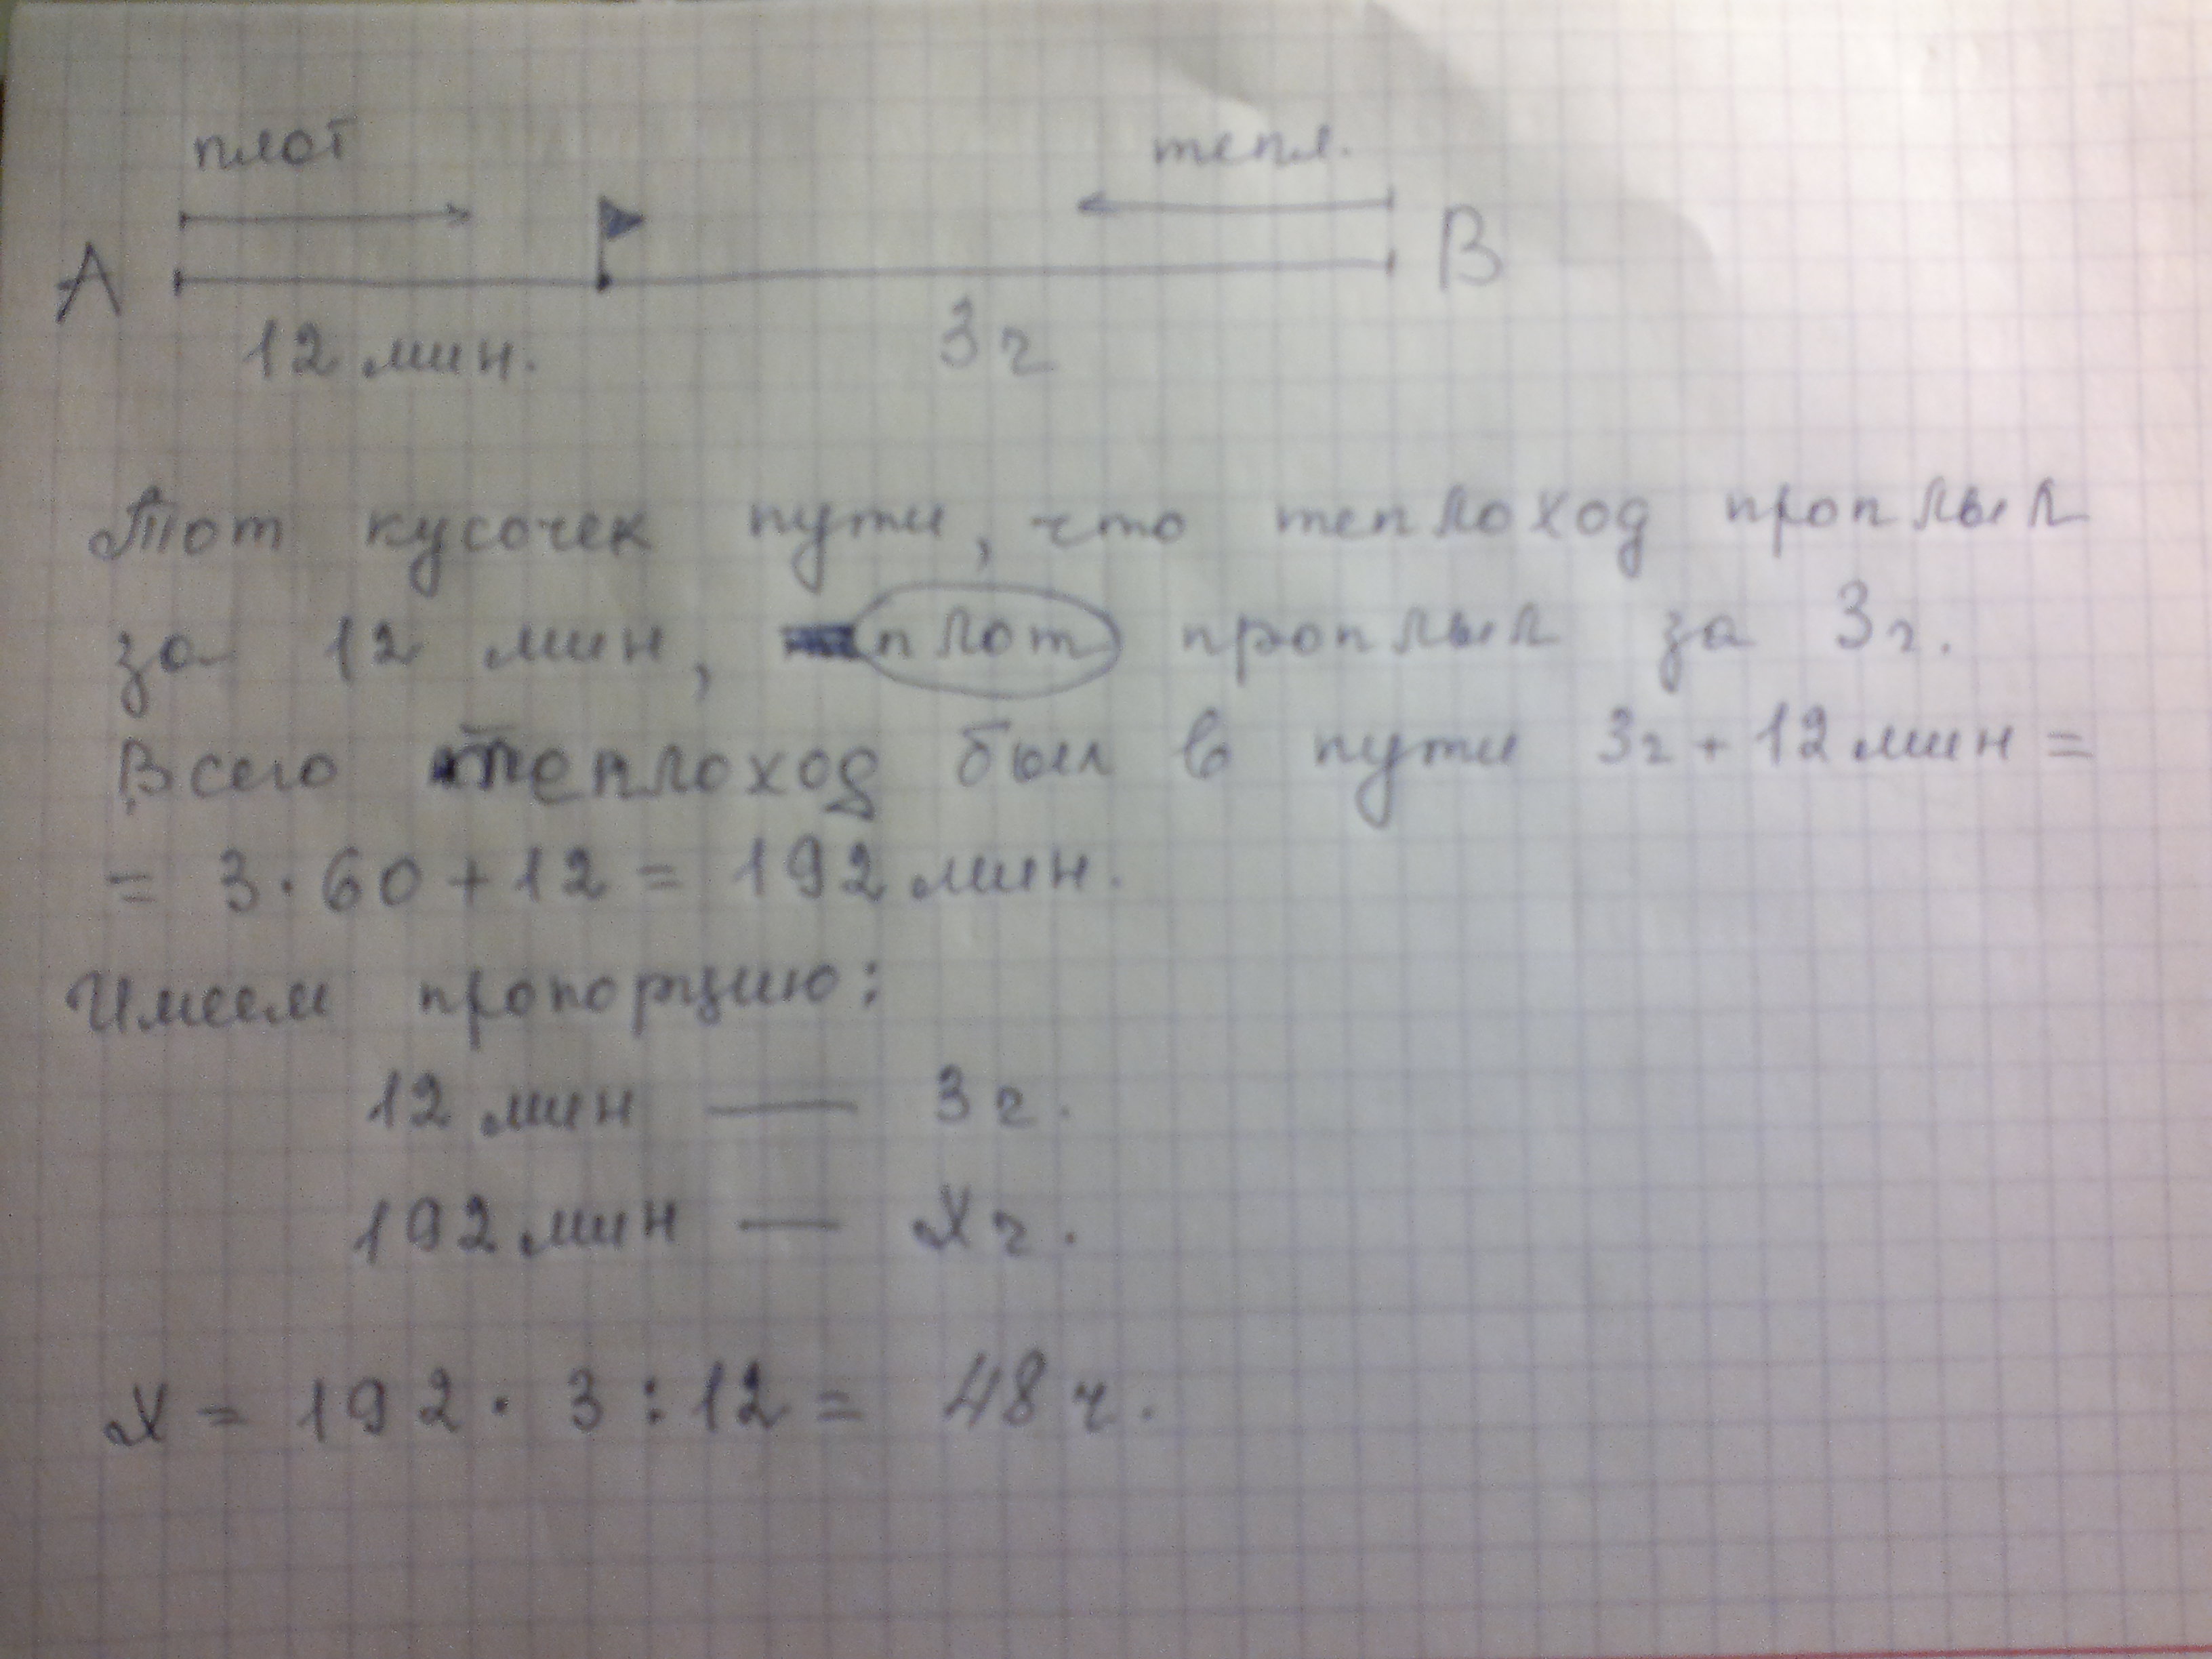 плот тепл.
А В
12 мин. 3 ч
Тот кусочек пути, что теплоход проплыл
за 12 мин, плот проплыл за 3 ч.
Всего теплоход был в пути 3ч + 12 мин =
= 3 · 60 + 12 = 192 мин.
Имеем пропорцию:
12 мин — 3 ч.
192 мин — X ч.
X = 192 · 3 : 12 = 48 ч.